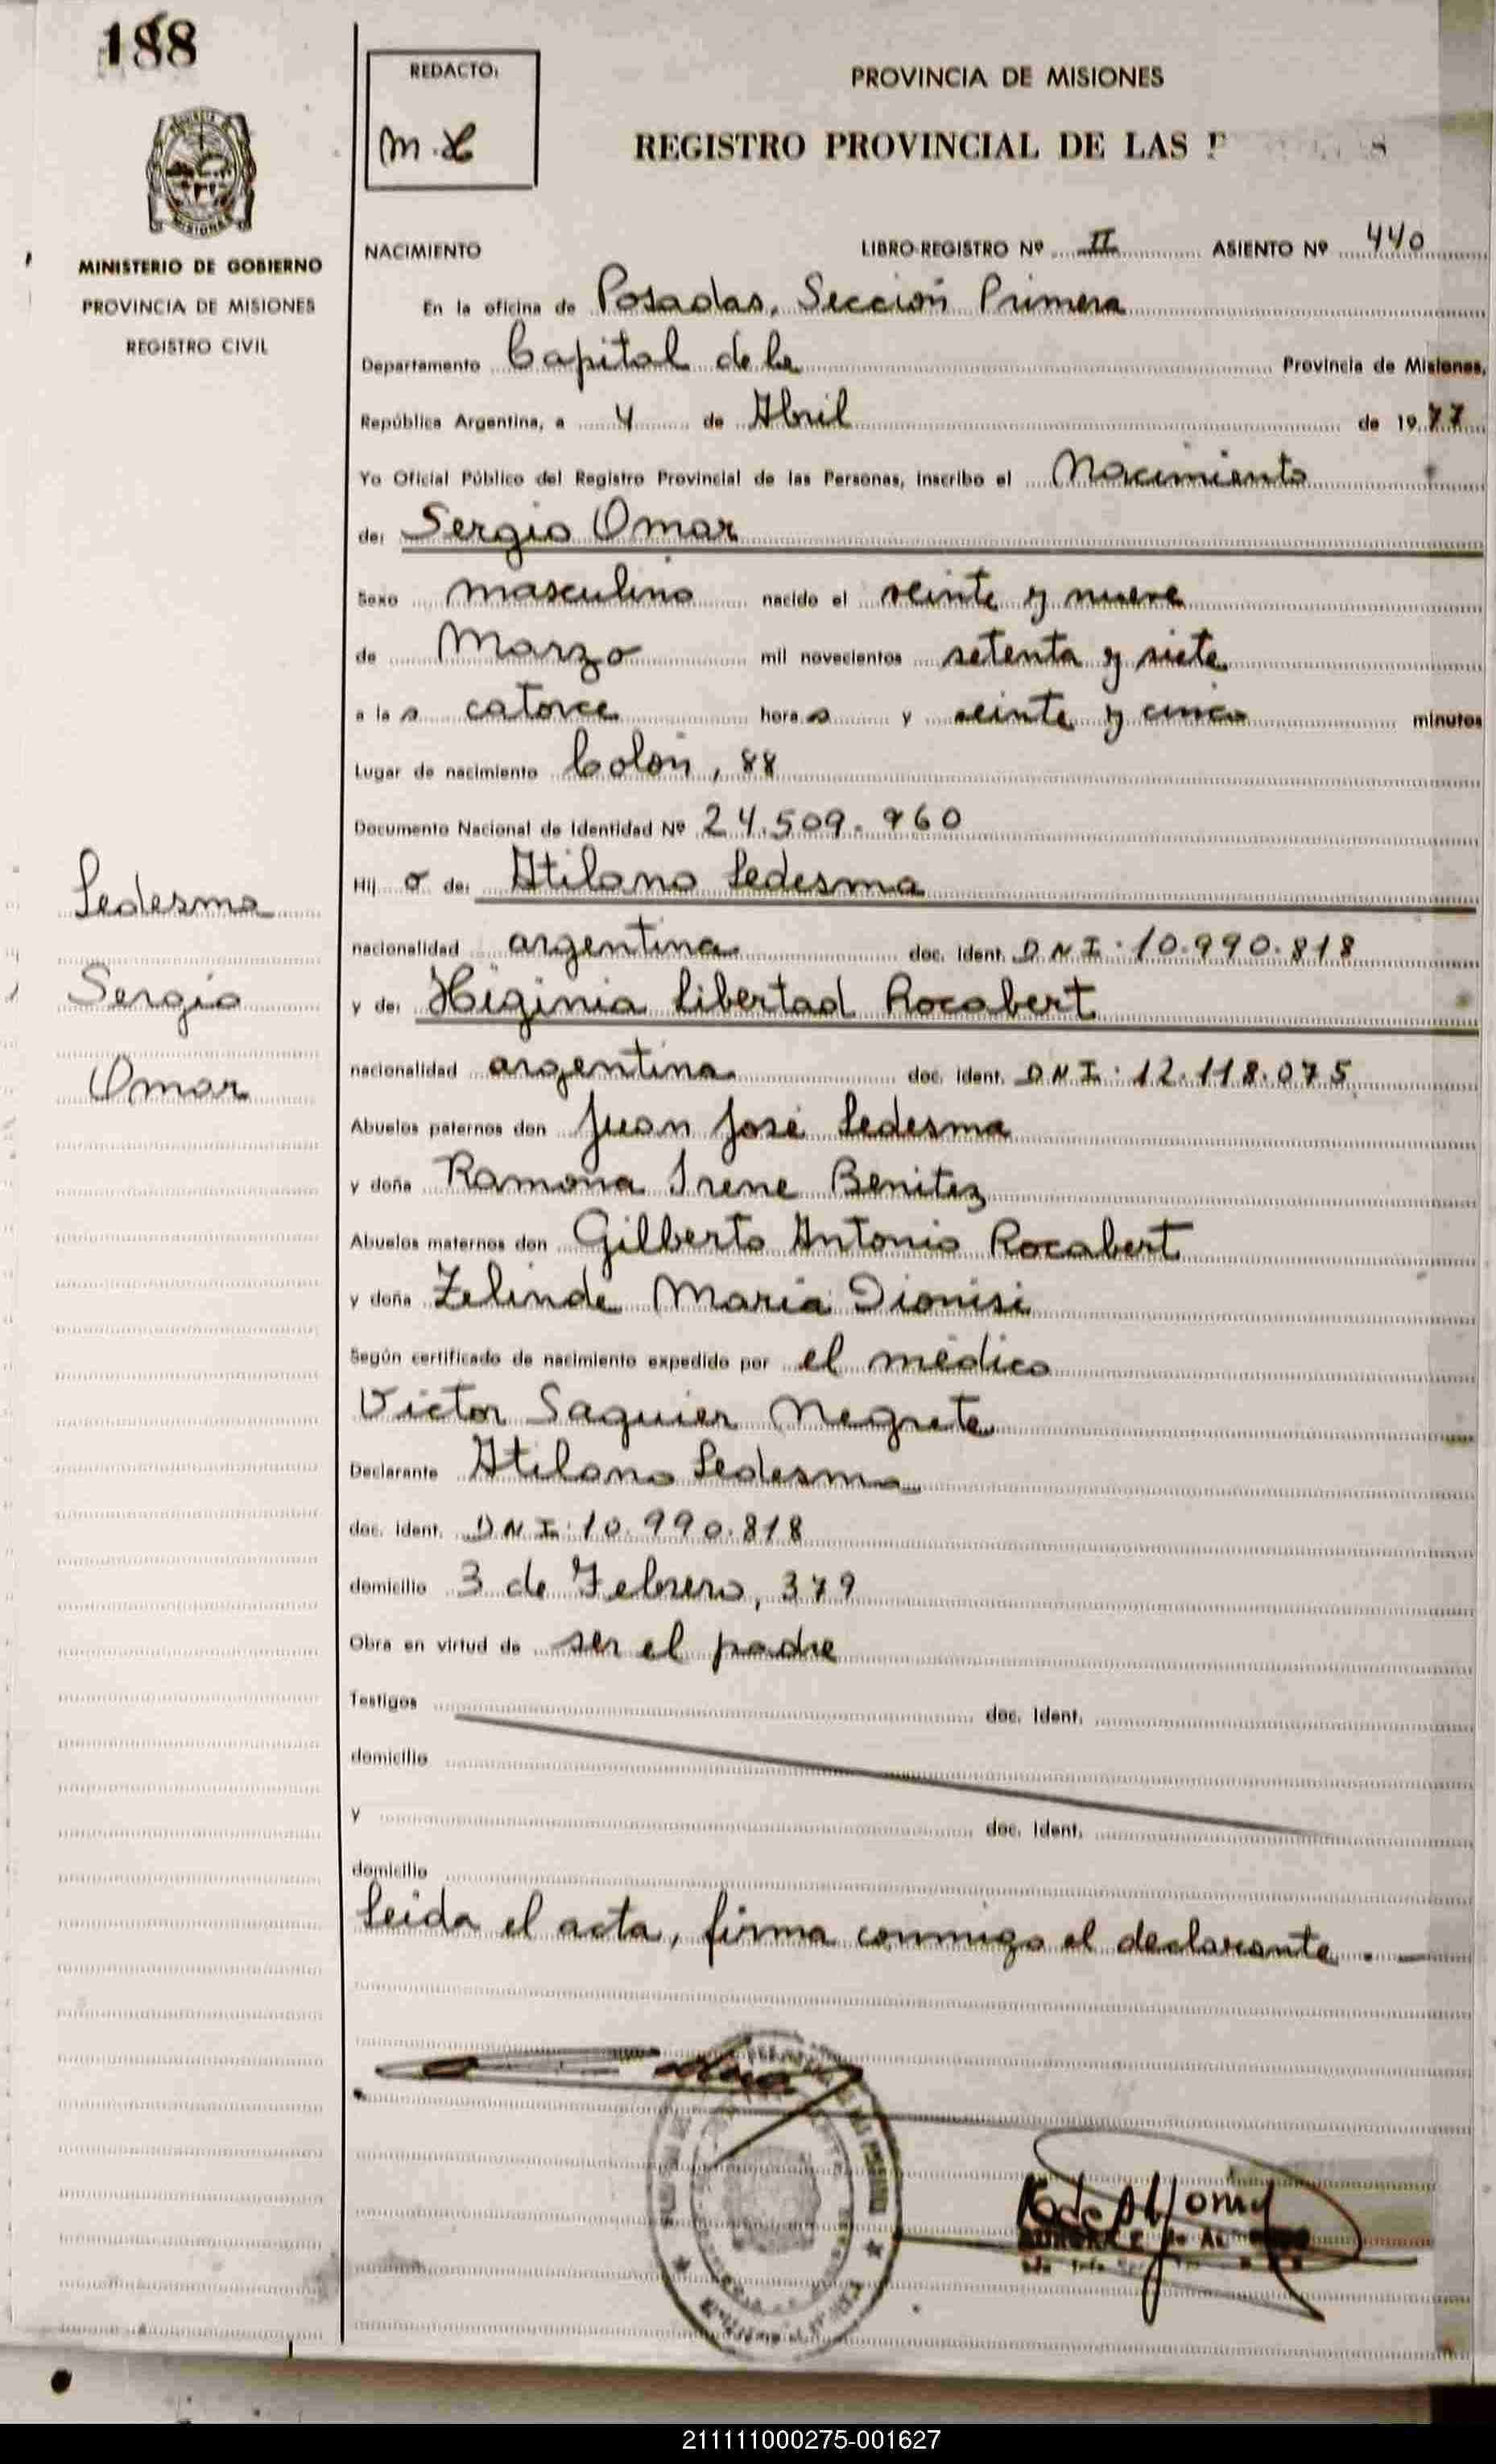 188
REDACTO:
M.L
PROVINCIA DE MISIONES
REGISTRO PROVINCIAL DE LAS
MINISTERIO DE GOBIERNO
PROVINCIA DE MISIONES
REGISTRO CIVIL
NACIMIENTO LIBRO-REGISTRO Nº II ASIENTO Nº 440
En la oficina de Posadas, Sección Primera
Departamento Capital de la Provincia de Misiones,
República Argentina, a 4 de Abril de 1977
Yo Oficial Público del Registro Provincial de las Personas, inscribo el Nacimiento
de: Sergio Omar
Sexo masculino nacido el veinte y nueve
de Marzo mil novecientos setenta y siete
a las catorce horas y veinte y cinco minutos
Lugar de nacimiento Colón, 88
Documento Nacional de Identidad Nº 24.509.760
Hijo de: Atilano Ledesma
nacionalidad argentina doc. ident. DNI: 10.990.818
y de: Higinia Libertad Rocabert
nacionalidad argentina doc. ident. DNI: 12.118.075
Abuelos paternos don Juan José Ledesma
y doña Ramona Irene Benitez
Abuelos maternos don Gilberto Antonio Rocabert
y doña Zelinde María Dionisi
Según certificado de nacimiento expedido por el médico
Victor Saguier Negrete
Declarante Atilano Ledesma
doc. ident. DNI: 10.990.818
domicilio 3 de Febrero, 379
Obra en virtud de ser el padre
Testigos doc. ident.
domicilio
y doc. ident.
domicilio
Leida el acta, firma conmigo el declarante. —
Ledesma
Sergio
Omar
211111000275-001627